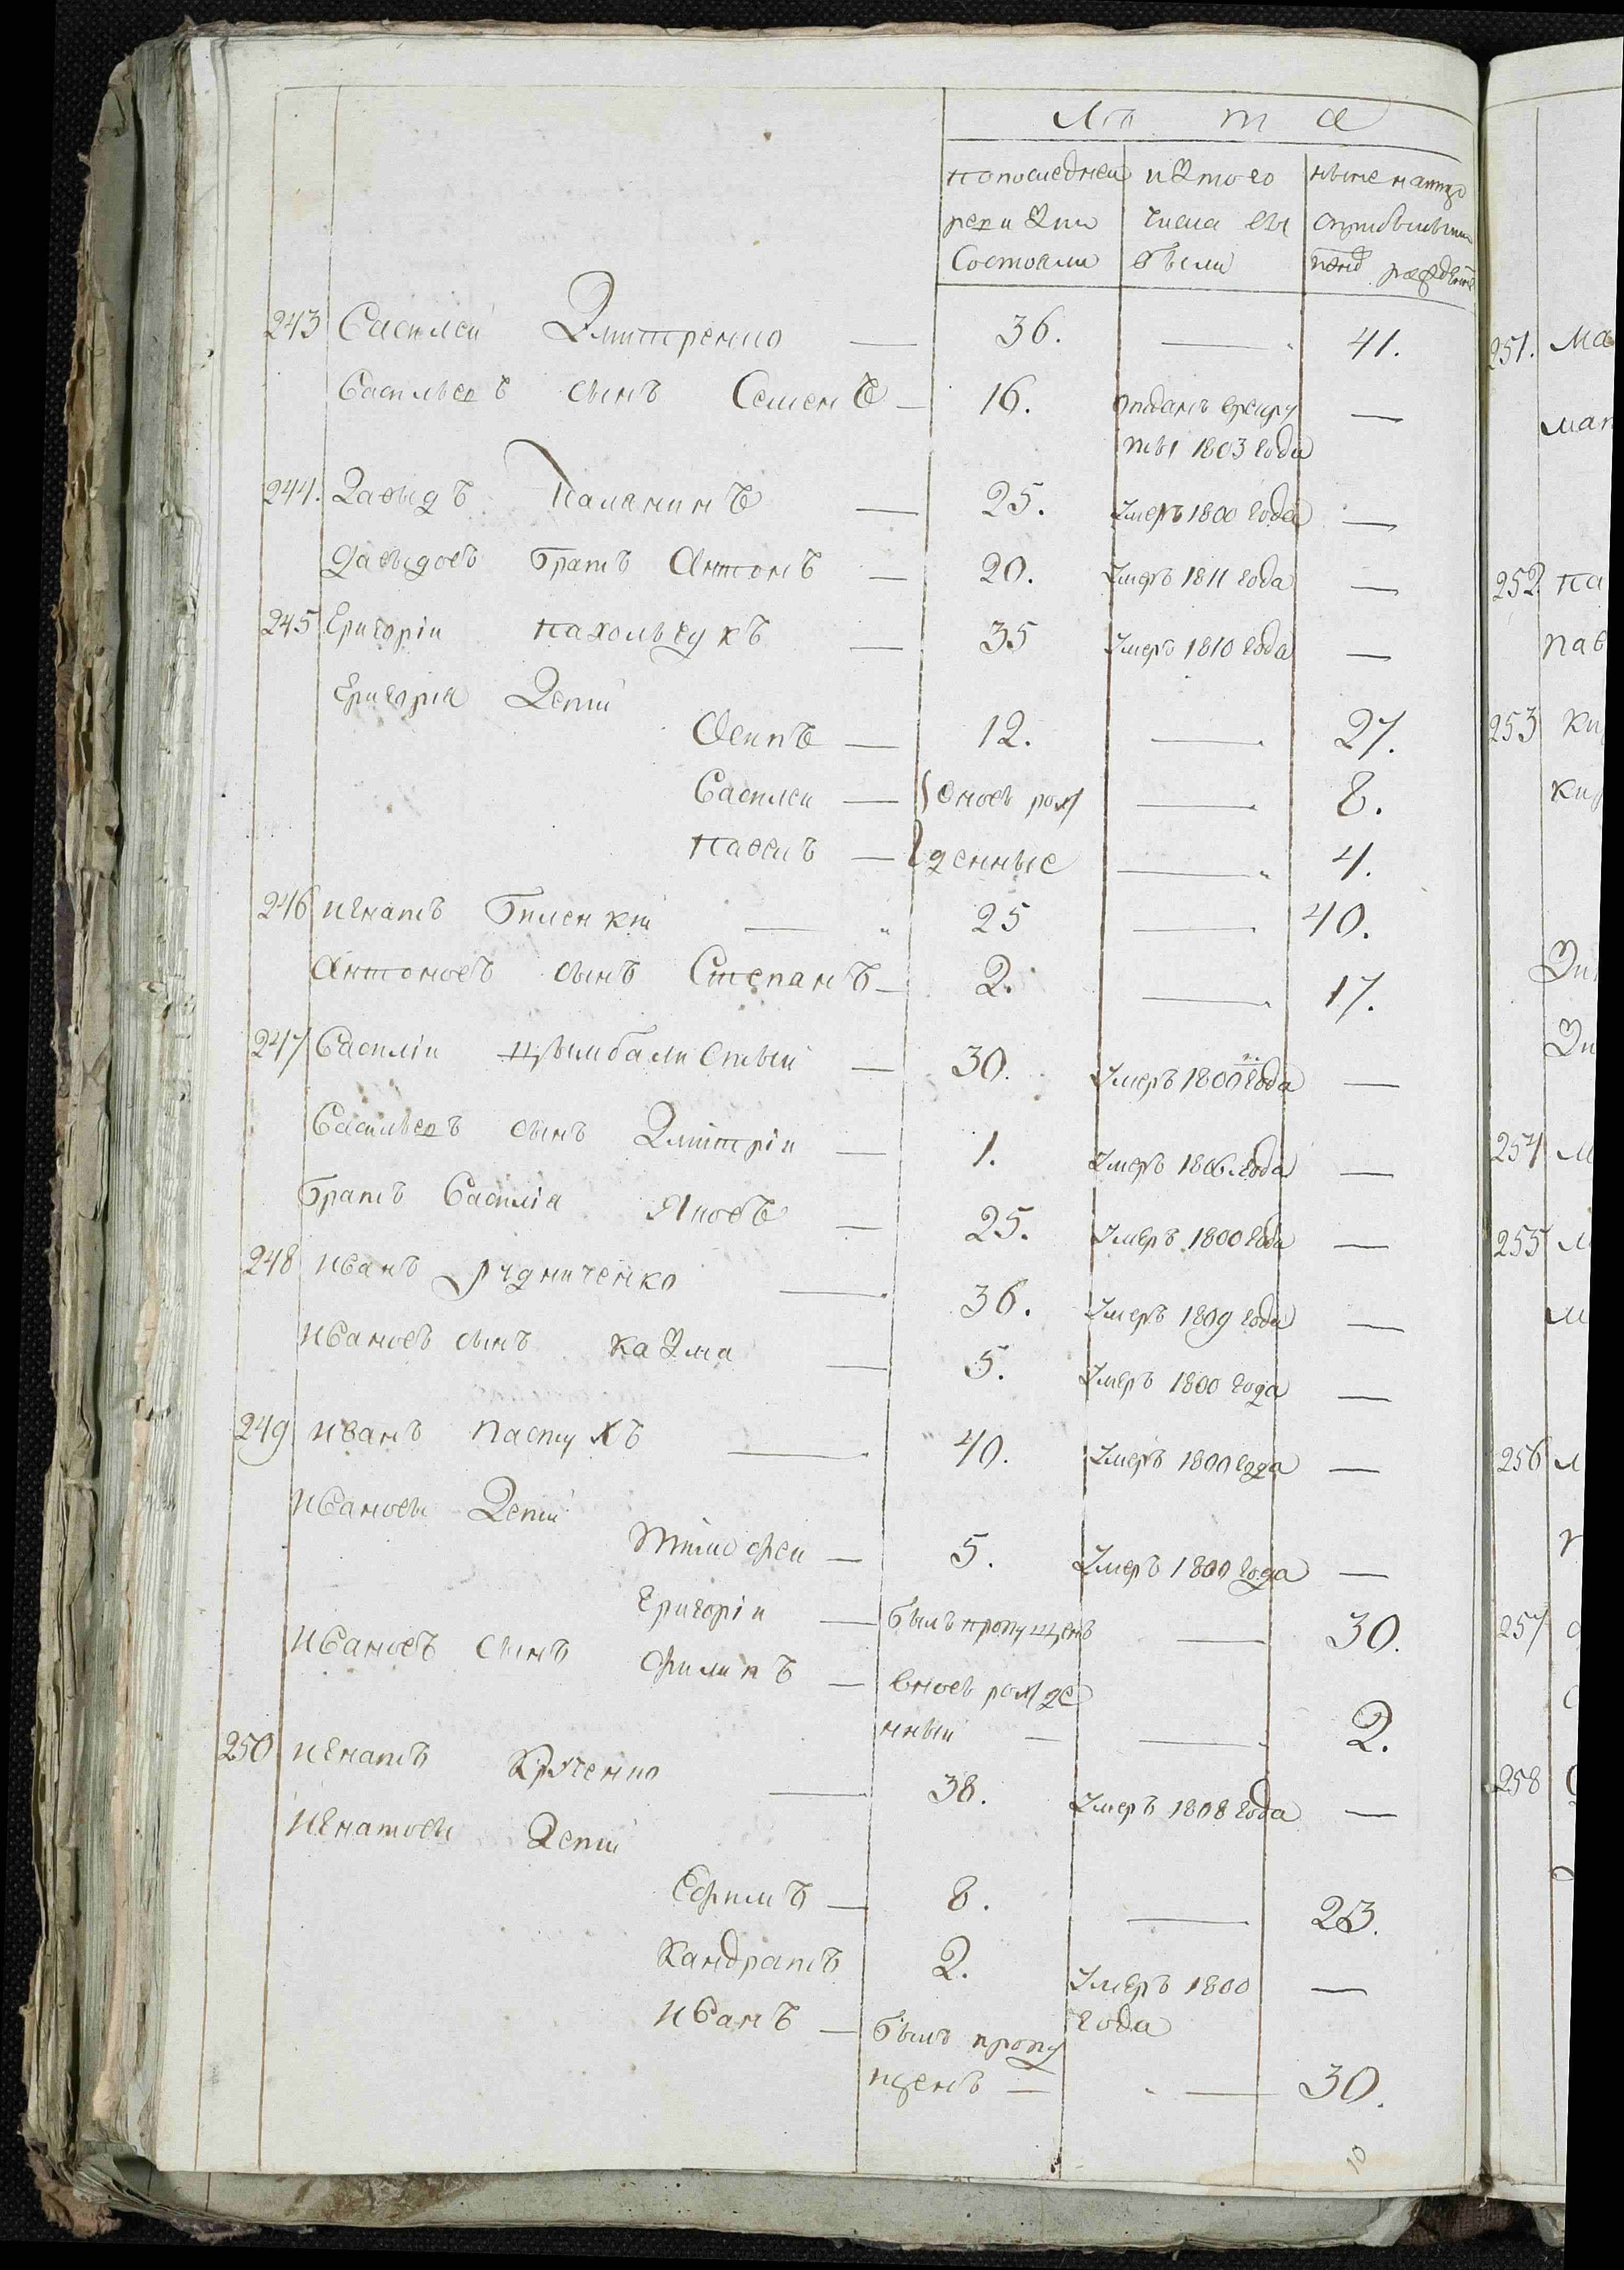 Лѣта
попоследней изтого ныне налицо
ревизии числа вы
Состояли были
243 Василей Дмитренко — 36. — 41.
Васильевъ сынъ Семенъ — 16. отданъ врекру —
ты 1803 года
244. Давыдъ Паламинъ — 25. Умеръ 1800 года —
Давыдовъ братъ Антонъ — 20. Умеръ 1811 года —
245 Григоріи Пахольчукъ — 35 Умеръ 1810 года —
Григорія Дети
Осипъ — 12. — 27.
Василеи — вновь рож — 8.
Павелъ — денные — 4.
246 Игнатъ Биленкіи — 25 — 40.
Антоновъ сынъ Степанъ — 2. — 17.
247 Василіи Цымбалистыи — 30. Умеръ 1800 года —
Васильевъ сынъ Дмитріи — 1. Умеръ 1806 года —
Братъ Василія Яковъ — 25. Умеръ 1800 года —
248 Иванъ Рудниченко — 36. Умеръ 1809 года —
Ивановъ сынъ Казма — 5. Умеръ 1800 года —
249 Иванъ Пастухъ — 40. Умеръ 1800 года —
Ивановы Дети
Тимофеи — 5. Умеръ 1800 года —
Григоріи — былъ пропущенъ — 30.
Ивановъ сынъ Филипъ — вновь рожде
нныи — — 2.
250 Игнатъ Кравченко — 38. Умеръ 1808 года —
Игнатовы Дети
Ефимъ — 8. — 23.
Кандратъ 2. Умеръ 1800 —
года
Иванъ — былъ пропу
щенъ — — 30.
10
251. Ма
мат
252 Па
Пав
253 Ки
Ки
254 М
255 М
256
257
258